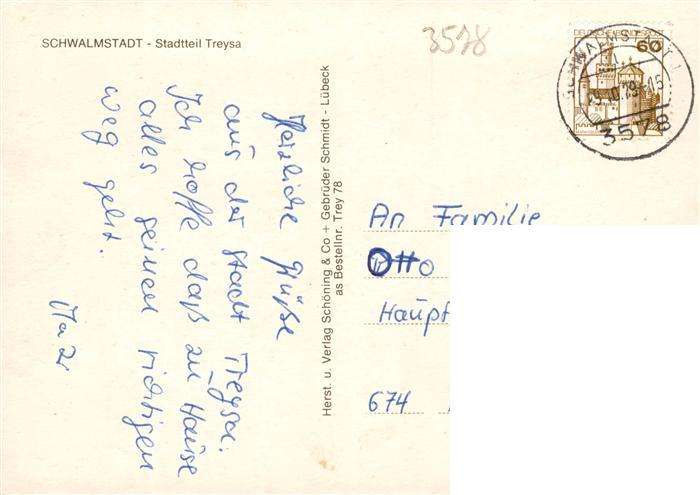 SCHWALMSTADT - Stadtteil Treysa
3578
DEUTSCHE BUNDESPOST
60
SCHWALMSTADT 1
3578
Herzliche Grüße
aus der Stadt Treysa.
Ich hoffe daß zu Hause
alles seinen richtigen
weg geht.
Herst. u. Verlag Schöning & Co + Gebrüder Schmidt - Lübeck
as Bestellnr. Trey 78
An Familie
Otto
Haupt
674